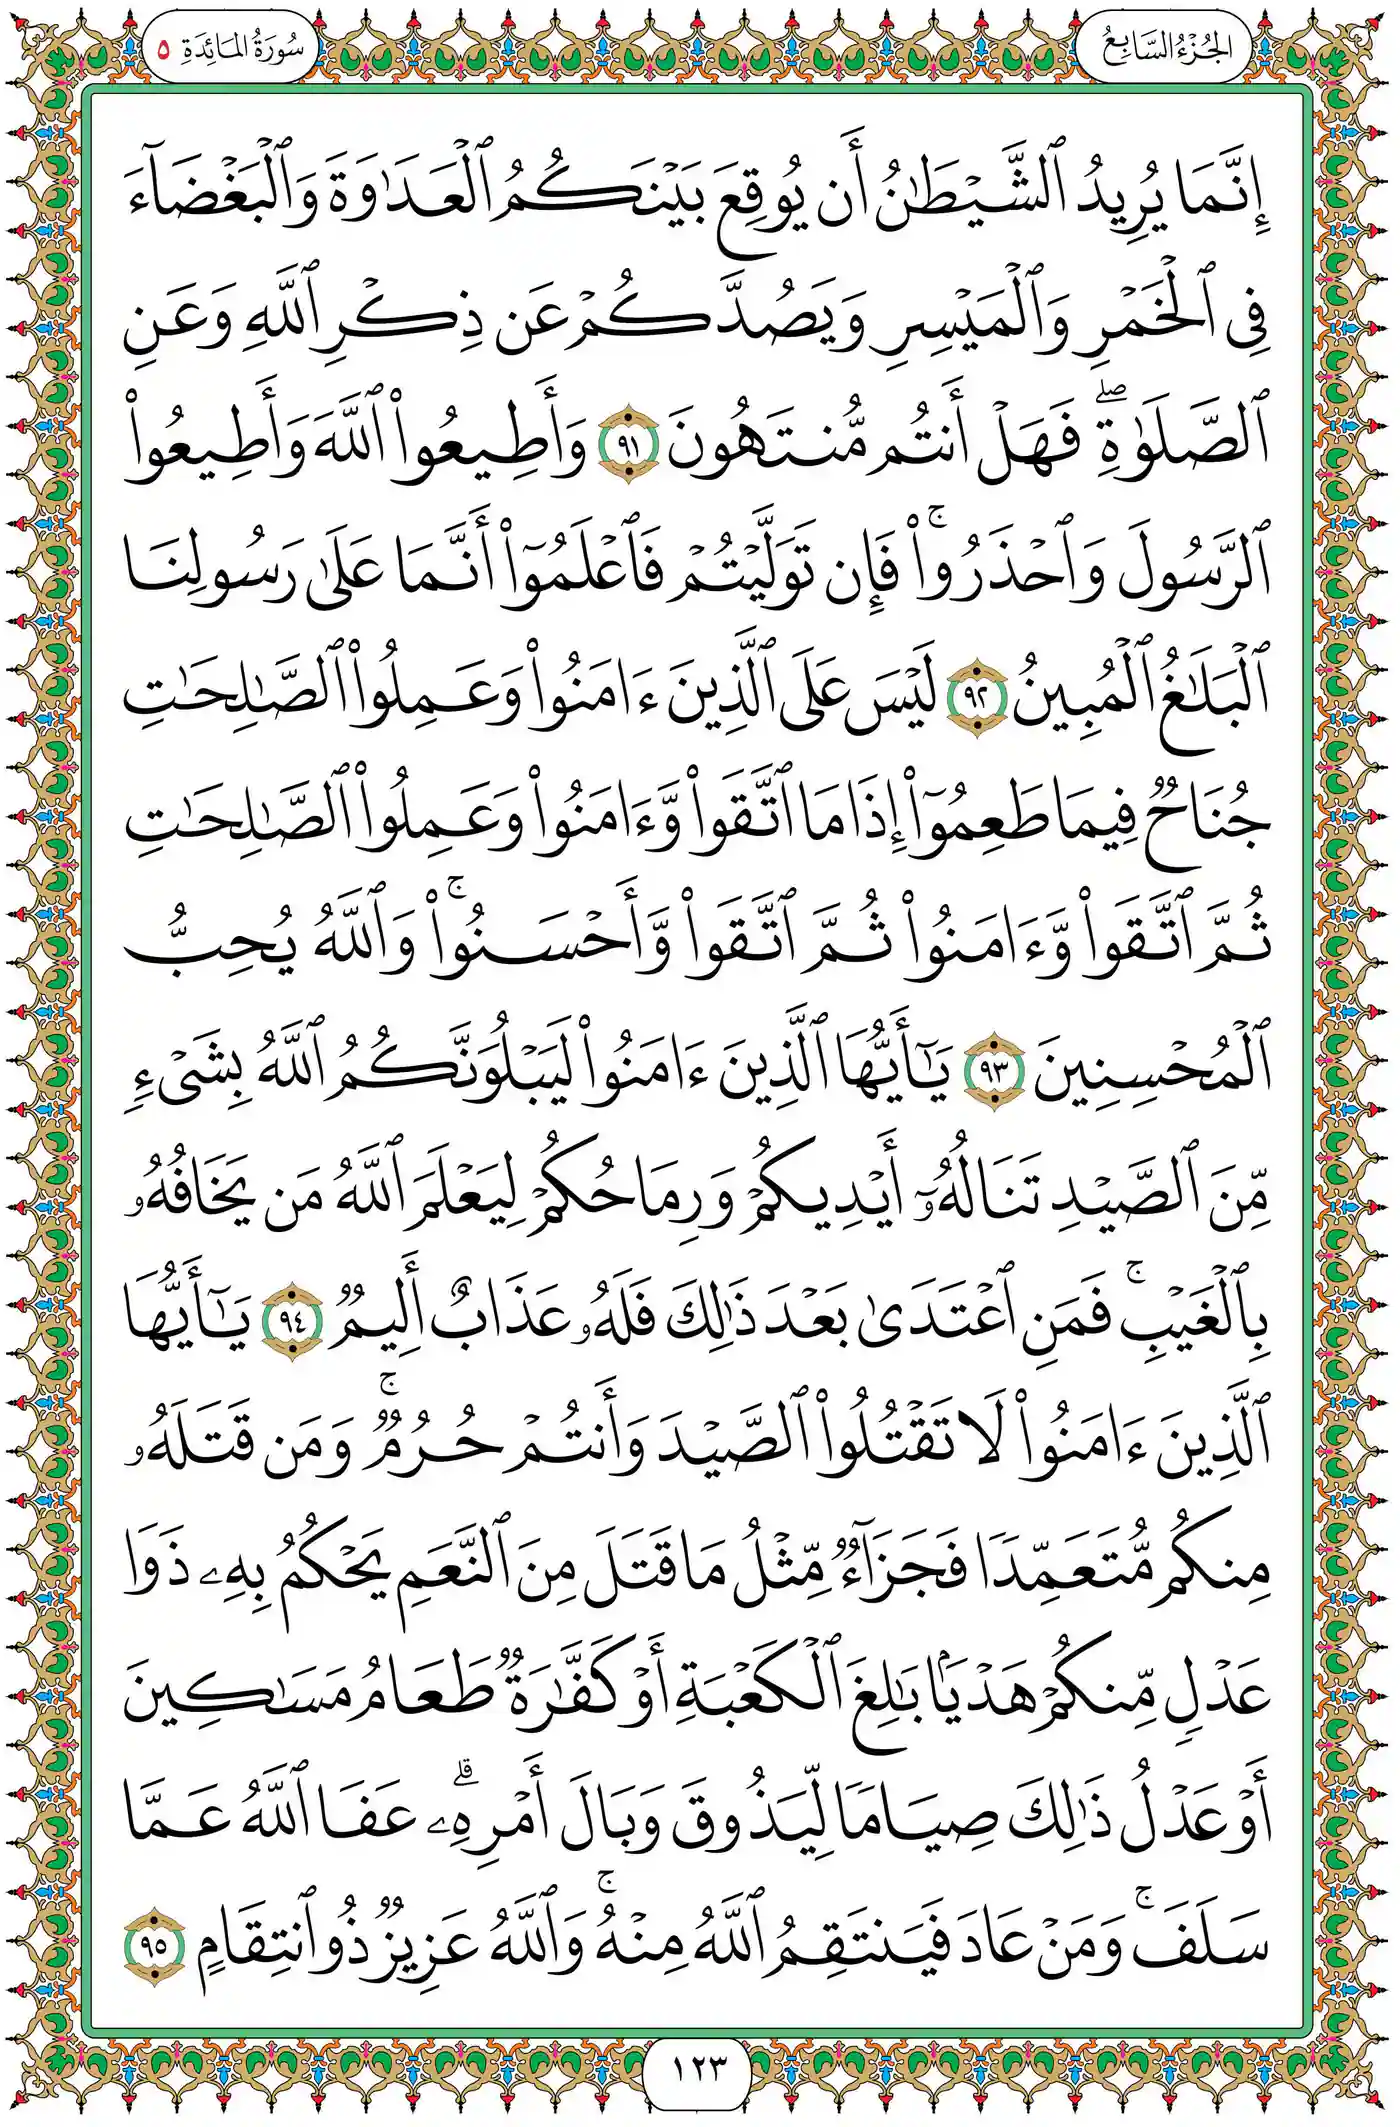 الجُزْءُ السَّابِعُ
سُورَةُ المَائِدَةِ ٥
إِنَّمَا يُرِيدُ ٱلشَّيۡطَٰنُ أَن يُوقِعَ بَيۡنَكُمُ ٱلۡعَدَٰوَةَ وَٱلۡبَغۡضَآءَ
فِي ٱلۡخَمۡرِ وَٱلۡمَيۡسِرِ وَيَصُدَّكُمۡ عَن ذِكۡرِ ٱللَّهِ وَعَنِ
ٱلصَّلَوٰةِۖ فَهَلۡ أَنتُم مُّنتَهُونَ ٩١ وَأَطِيعُواْ ٱللَّهَ وَأَطِيعُواْ
ٱلرَّسُولَ وَٱحۡذَرُواْۚ فَإِن تَوَلَّيۡتُمۡ فَٱعۡلَمُوٓاْ أَنَّمَا عَلَىٰ رَسُولِنَا
ٱلۡبَلَٰغُ ٱلۡمُبِينُ ٩٢ لَيۡسَ عَلَى ٱلَّذِينَ ءَامَنُواْ وَعَمِلُواْ ٱلصَّٰلِحَٰتِ
جُنَاحٞ فِيمَا طَعِمُوٓاْ إِذَا مَا ٱتَّقَواْ وَّءَامَنُواْ وَعَمِلُواْ ٱلصَّٰلِحَٰتِ
ثُمَّ ٱتَّقَواْ وَّءَامَنُواْ ثُمَّ ٱتَّقَواْ وَّأَحۡسَنُواْۚ وَٱللَّهُ يُحِبُّ
ٱلۡمُحۡسِنِينَ ٩٣ يَٰٓأَيُّهَا ٱلَّذِينَ ءَامَنُواْ لَيَبۡلُوَنَّكُمُ ٱللَّهُ بِشَيۡءٖ
مِّنَ ٱلصَّيۡدِ تَنَالُهُۥٓ أَيۡدِيكُمۡ وَرِمَاحُكُمۡ لِيَعۡلَمَ ٱللَّهُ مَن يَخَافُهُۥ
بِٱلۡغَيۡبِۚ فَمَنِ ٱعۡتَدَىٰ بَعۡدَ ذَٰلِكَ فَلَهُۥ عَذَابٌ أَلِيمٞ ٩٤ يَٰٓأَيُّهَا
ٱلَّذِينَ ءَامَنُواْ لَا تَقۡتُلُواْ ٱلصَّيۡدَ وَأَنتُمۡ حُرُمٞۚ وَمَن قَتَلَهُۥ
مِنكُم مُّتَعَمِّدٗا فَجَزَآءٞ مِّثۡلُ مَا قَتَلَ مِنَ ٱلنَّعَمِ يَحۡكُمُ بِهِۦ ذَوَا
عَدۡلٖ مِّنكُمۡ هَدۡيَۢا بَٰلِغَ ٱلۡكَعۡبَةِ أَوۡ كَفَّٰرَةٞ طَعَامُ مَسَٰكِينَ
أَوۡ عَدۡلُ ذَٰلِكَ صِيَامٗا لِّيَذُوقَ وَبَالَ أَمۡرِهِۦۗ عَفَا ٱللَّهُ عَمَّا
سَلَفَۚ وَمَنۡ عَادَ فَيَنتَقِمُ ٱللَّهُ مِنۡهُۚ وَٱللَّهُ عَزِيزٞ ذُو ٱنتِقَامٍ ٩٥
١٢٣